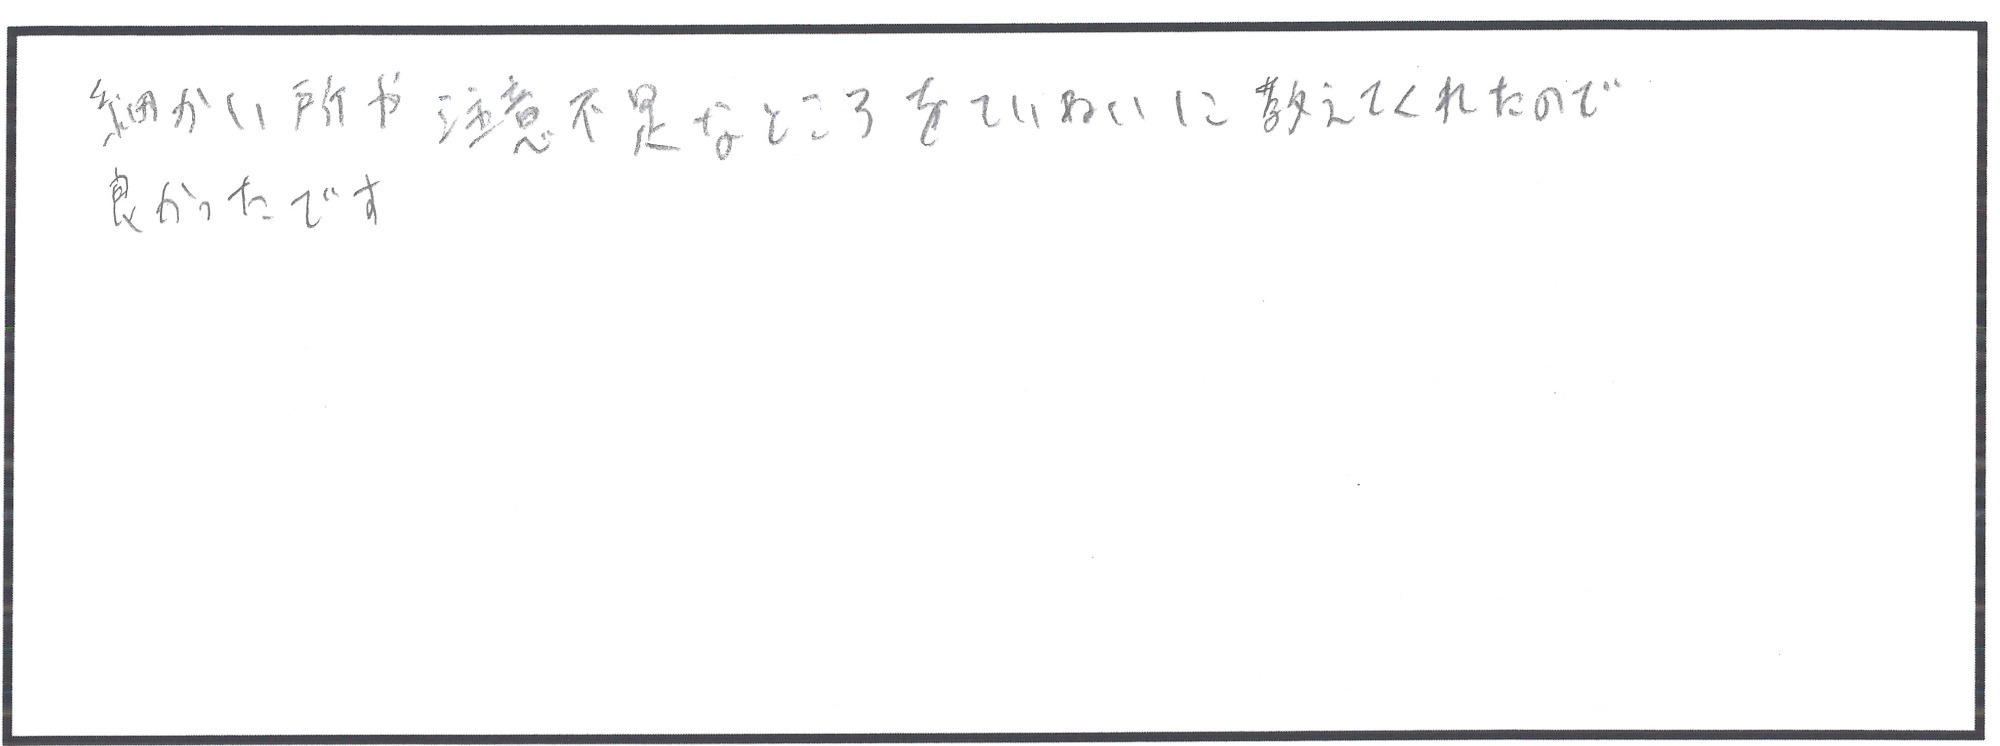 細かい所や注意不足なところをていねいに教えてくれたので
良かったです